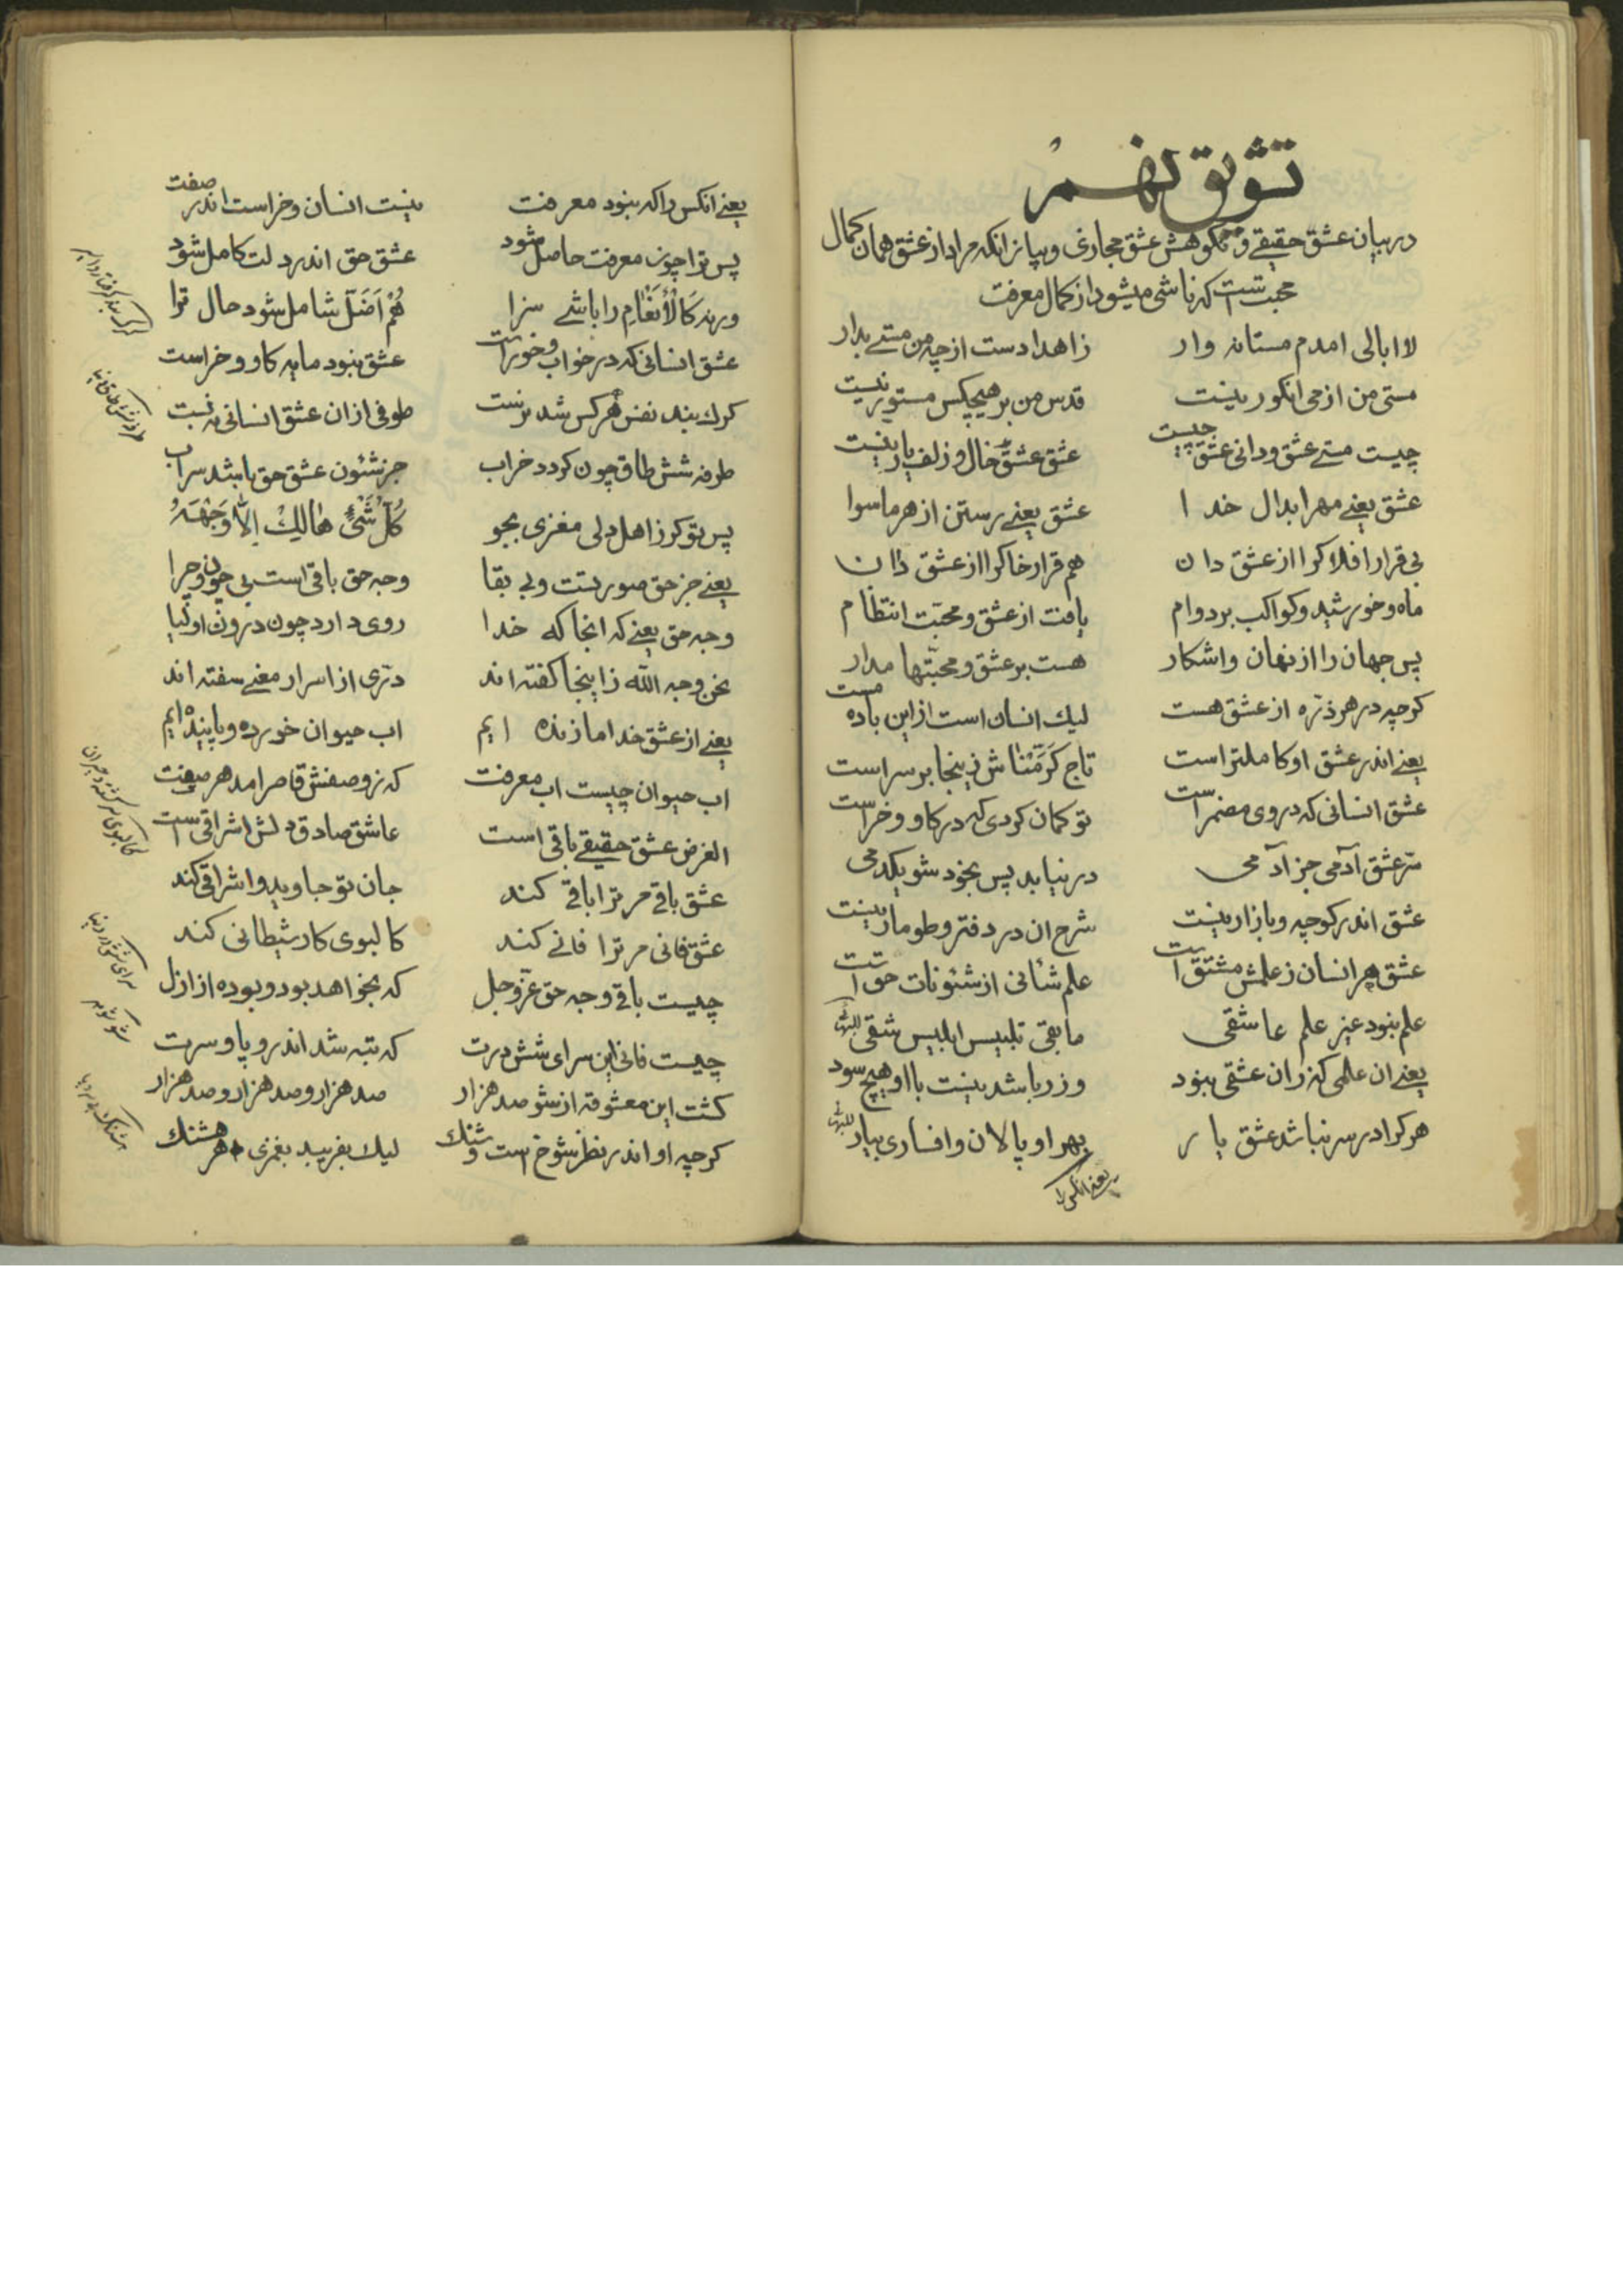 تشویق نهم
در بیان عشق حقیقے و نکوهش عشق مجازی و بیان انکه مراد از عشق همان کمال
محبت است که ناشی میشود از کمال معرفت
لا ابالی امدم مستانه وار زاهدا دست از چه من مستے بدار
مستی من از می انکور نیست قدس من بر هیچکس مستور نیست
چیست مستے عشق و دانی عشق چیست عشق عشق خال و زلف یار نیست
عشق یعنے مهر ابدال خدا عشق یعنے رستن از هر ما سوا
بی قرار افلاکرا از عشق دان هم قرار خاکرا از عشق دان
ماه و خورشید و کواکب بر دوام یافت از عشق و محبّت انتظام
پس جهان را از نهان و اشکار هست بر عشق و محبّتها مدار
کرچه در هر ذرّه از عشق هست لیك انسان است از این باده مست
یعنے اندر عشق او کاملتر است تاج کَرَّمْنٰاش زینجا بر سر است
عشق انسانی که در وی مضمر است تو کمان کردی که در کاو و خر است
سّر عشق آدمی جز آدمی در نیابد پس بخود شو یکدمی
عشق اندر کوچه و بازار نیست شرح ان در دفتر و طومار نیست
عشق هر انسان ز علمش مشتق است علم شأنی از شئونات حق است
علم نبود غیر علم عاشقی ما بقی تلبیس ابلیس شقی
یعنے ان علمی که زان عشقی نبود و زر باشد نیست با او هیچ سود
هر کرا در سر نباشد عشق یار بهر او پالان و افساری بیار
یعنے انکس را
یعنے انکس را که نبود معرفت نیست انسان و خر است اندر صفت
پس ترا چون معرفت حاصل شود عشق حق اندر دلت کامل شود
ورنه كَالْأَنْعٰامِ را باشے سزا هُمْ اَضَلّ شامل شود حال ترا
عشق انسانی که در خواب و خور است عشق نبود مایه کاو و خر است
کرك بند نفس هر کس شد نرست طوفی از ان عشق انسانی نه بست
طرفه شش طاق چون کردد خراب جز شئون عشق حق باشد سراب
پس تو کر ز اهل دلی مغزی بجو كُلّ شَىْءٍ هٰالِكْ اِلاّٰ وَجْهَهُ
یعنے جز حق صورتست و بی بقا وجه حق باقی است بی چون و چرا
وجه حق یعنے که انجا که خدا روی دارد چون درون اولیا
نحن وجه اللّه ز اینجا کفته اند درّی از اسرار معنے سفته اند
یعنے از عشق خدا ما زنده ایم اب حیوان خورده و پاینده ایم
اب حیوان چیست اب معرفت که ز وصفش قاصر امد هر صفت
الغرض عشق حقیقے باقی است عاشق صادق دلش اشراقی است
عشق باقے مر ترا باقے کند جان تو جاوید و اشراقی کند
عشق فانی مر ترا فانے کند کالبوی کار شیطانی کند
چیست باقے وجه حق عزّ و جل که بخواهد بود و بوده از ازل
چیست فانی این سرای شش درت که تبه شد اندر و پا و سرت
کشت این معشوقه از شو صد هزار صد هزار و صد هزار و صد هزار
کرچه او اندر نظر شوخ است و شنك لیك بفریبد بغمزی هر هشنك